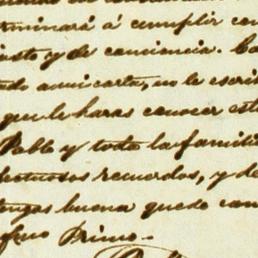 terminará á cumplir con
justo y de conciencia. 
do á mi carta, no le escrib
que le haras conocer est
Pablo y toda la famili
fectuosos recuerdos, y de
tengas buena quedo com
Primo.